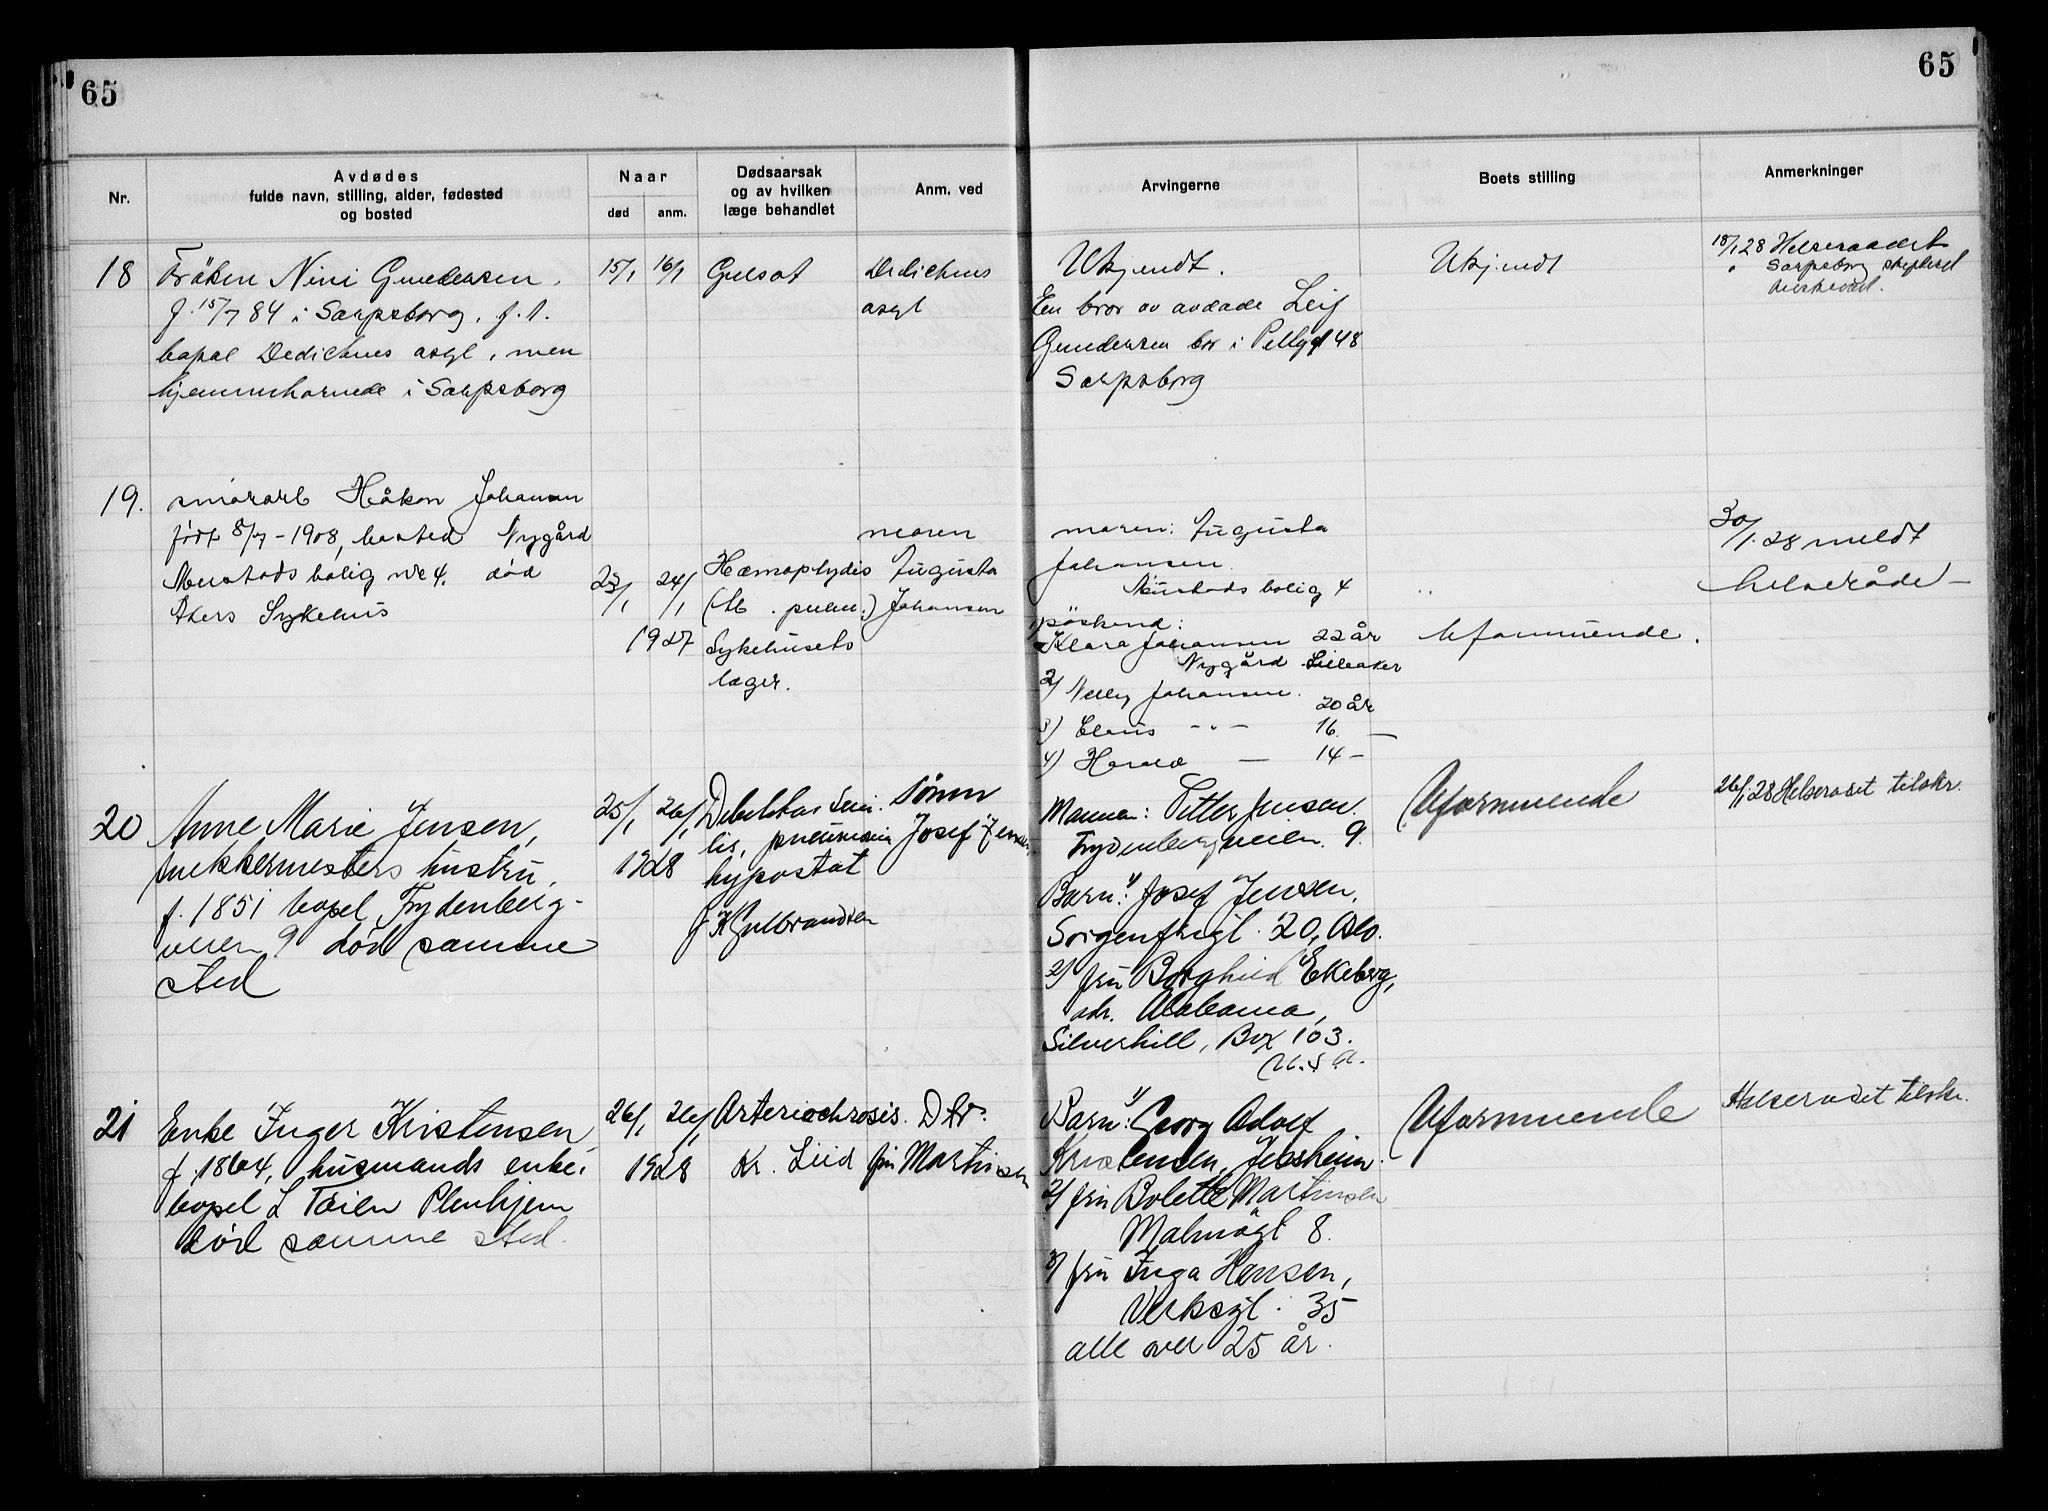 65
65
Nr.
Avdødes
fulde navn, stilling, alder, fødested
og bosted
Naar
død
anm.
Dødsaarsak
og av hvilken
læge behandlet
Anm. ved
Arvingerne
Boets stilling
Anmerkninger
18
Fröken Nini Gundersen.
f. 15/7 84 i Sarpsborg. f. t.
bopæl Dedichens asyl, men
hjemmehørende i Sarpsborg
15/1
16/1
Gulsot
Dedichens
asyl
Ukjendt.
En bror av avdøde Leif
Gundersen bor i 48
Sarpsborg
Ukjendt
18/1 28 Helseraadet
" Sarpsborg skifteret
19.
smørarb Håkon Johansen
født 8/7-1908, bosted Nygård
Mustads bolig nr 4. død
Akers Sykehus
23/1
24/1
1927
Hæmoptydis
(tb. pulm.)
Sykehusets
læger.
moren
Augusta
Johansen
moren: Augusta
Johansen.
Mustads bolig 4
søskend:
1) Klara Johansen 22 år
Nygård Lilleaker
2) Nelly Johansen.
20 år
3) Claus -"- 16. —
4) — 14 –
Uformuende.
30/1. 28 meldt
helseråde –
20
Anne Marie Jensen,
snekkermesters hustru,
f. 1851 bopel Frydenberg-
veien 9 død samme
sted
25/1
26/1
1928
Debilitas seni-
lis, pneumonia
hypostat
J K Gulbrandsen
Sønnen
Josef Jensen
Mannen: Petter Jensen.
Frydenbergveien. 9.
Barn: 1) Josef Jensen,
Sorgenfrigt. 20, Oslo.
2) fru Borghild Ekeberg,
adr. Alabama,
Silverhill, Box 103.
U.S.A.
Uformuende
26/1 28 Helserådet tilskr.
21
Enke Inger Kristensen
f. 1864, husmands enke,
bopel L Tøien Pleiehjem
død samme sted.
26/1
26/1
1928
Arterioschrosis.
Kr. Lied
Dtr.
fru Martinsen
Barn: 1) Georg Adolf
Kristensen, Jessheim.
2) fru Bolette Martinsen
Malmøgt 8.
3) fru Inga Hansen,
Verksgt. 35
alle over 25 år.
Uformuende
Helserådet tilskr.